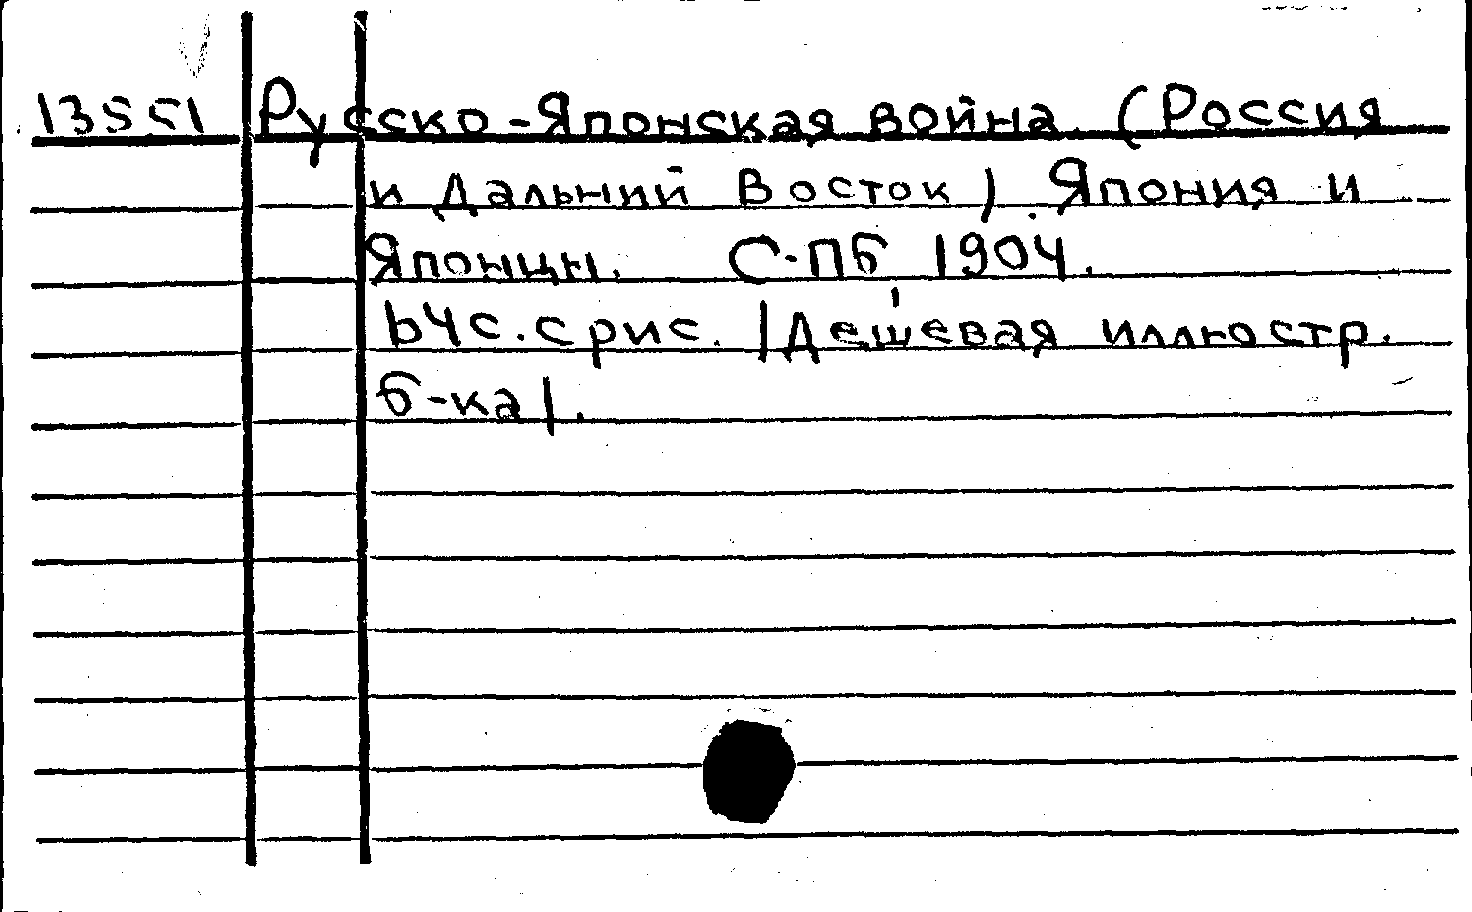 13551 Русско-Японская война. (Россия
и Дальний Восток). Япония и
Японцы. С-ПБ 1904.
64с. с рис. /Дешевая иллюстр.
б-ка/.